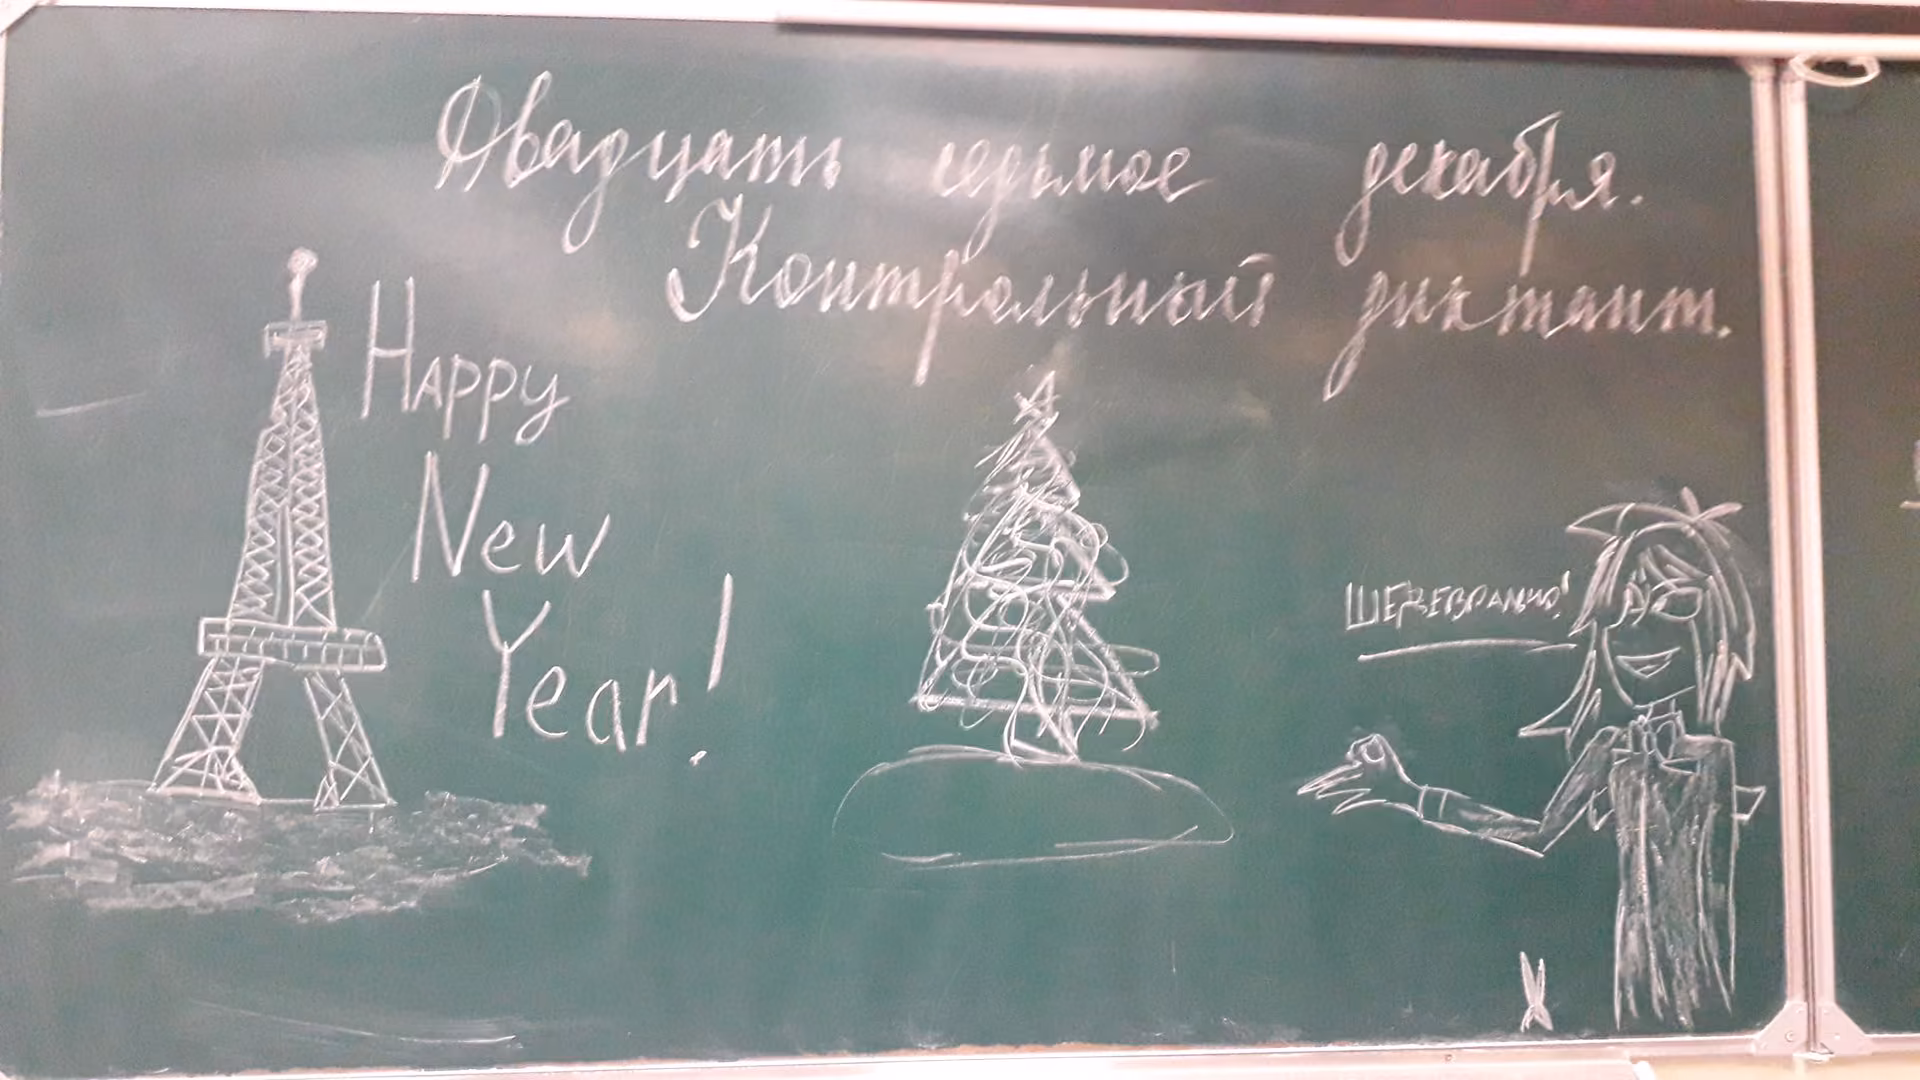 Двадцать седьмое декабря.
Контрольный диктант.
Happy
New
Year!
ШЕДЕВРАЛЬНО!